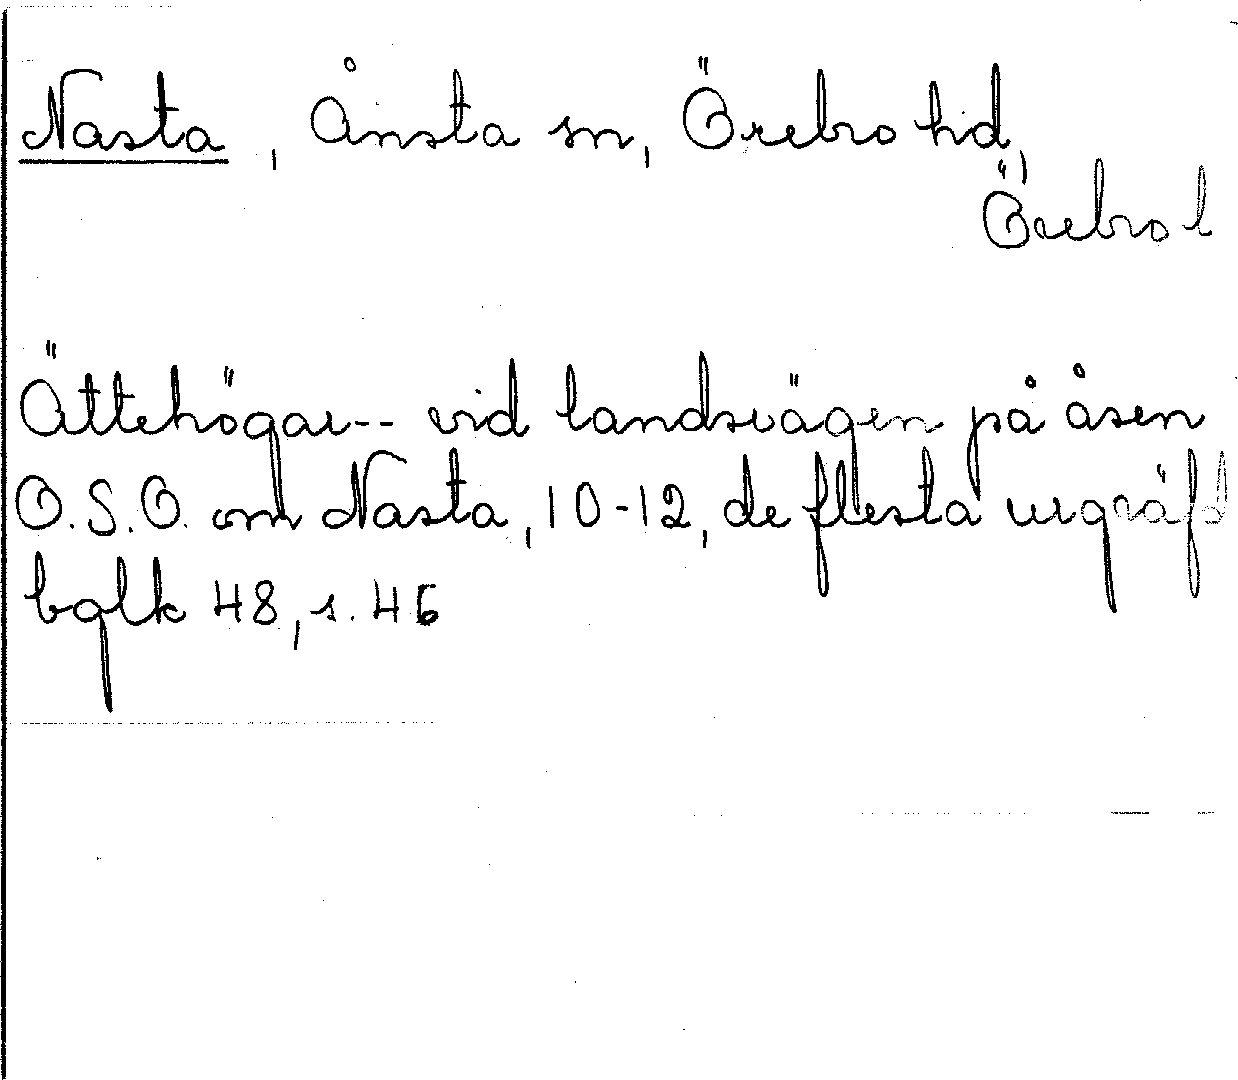 Nasta, Ånsta sn, Örebro hd,
Örebro l
Ättehögar-- vid landsvägen på åsen
O.S.O. om Nasta, 10-12, de flesta urgräfd
bglk 48, s. 46